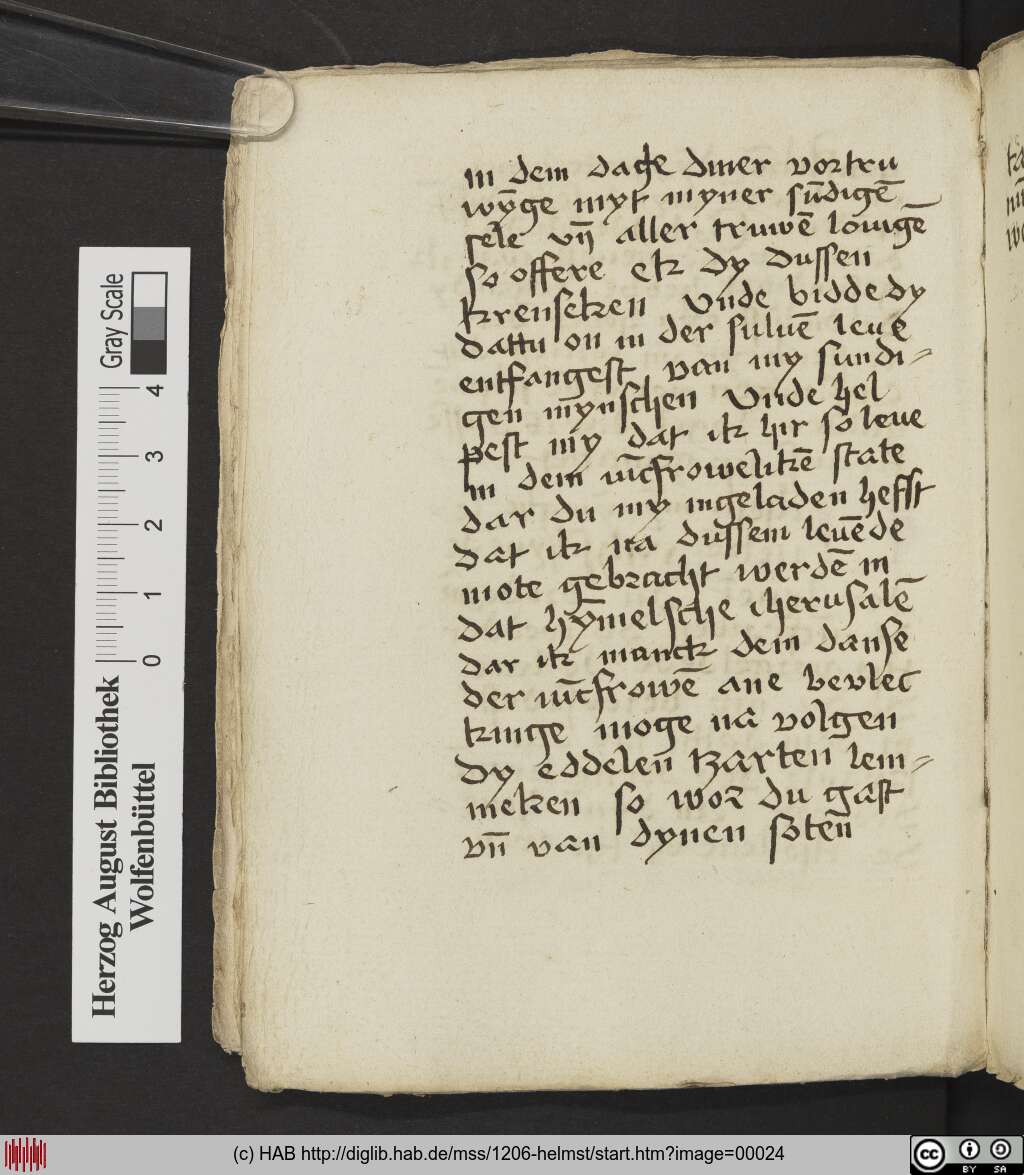 in dem daghe diner vortru
wy̅ge myt myner su̅dige̅
sele vn̅ aller truwe̅ louige̅
so offere ek dy dussen
krenseken Vnde bidde dy
dattu on in der suluē leue
entfangest van my sundi=
gen mynschen Vnde hel
pest my dat ik hir so leue
in dem iu̅cfrowelike̅ state
dar du my ingeladen heffst
dat ik na dussem leue̅de
mote gebracht werde̅ in
dat hy̅melsche iherusale̅
dar ik manck dem danse
der iu̅cfrowe̅ ane bevlec
kinge moge na volgen
dy eddelen tzarten lem=
meken so wor du gast
vn̅ van dynen soten
Herzog August Bibliothek
Wolfenbüttel
Gray Scale
0 1 2 3 4
(c) HAB http://diglib.hab.de/mss/1206-helmst/start.htm?image=00024
cc BY SA